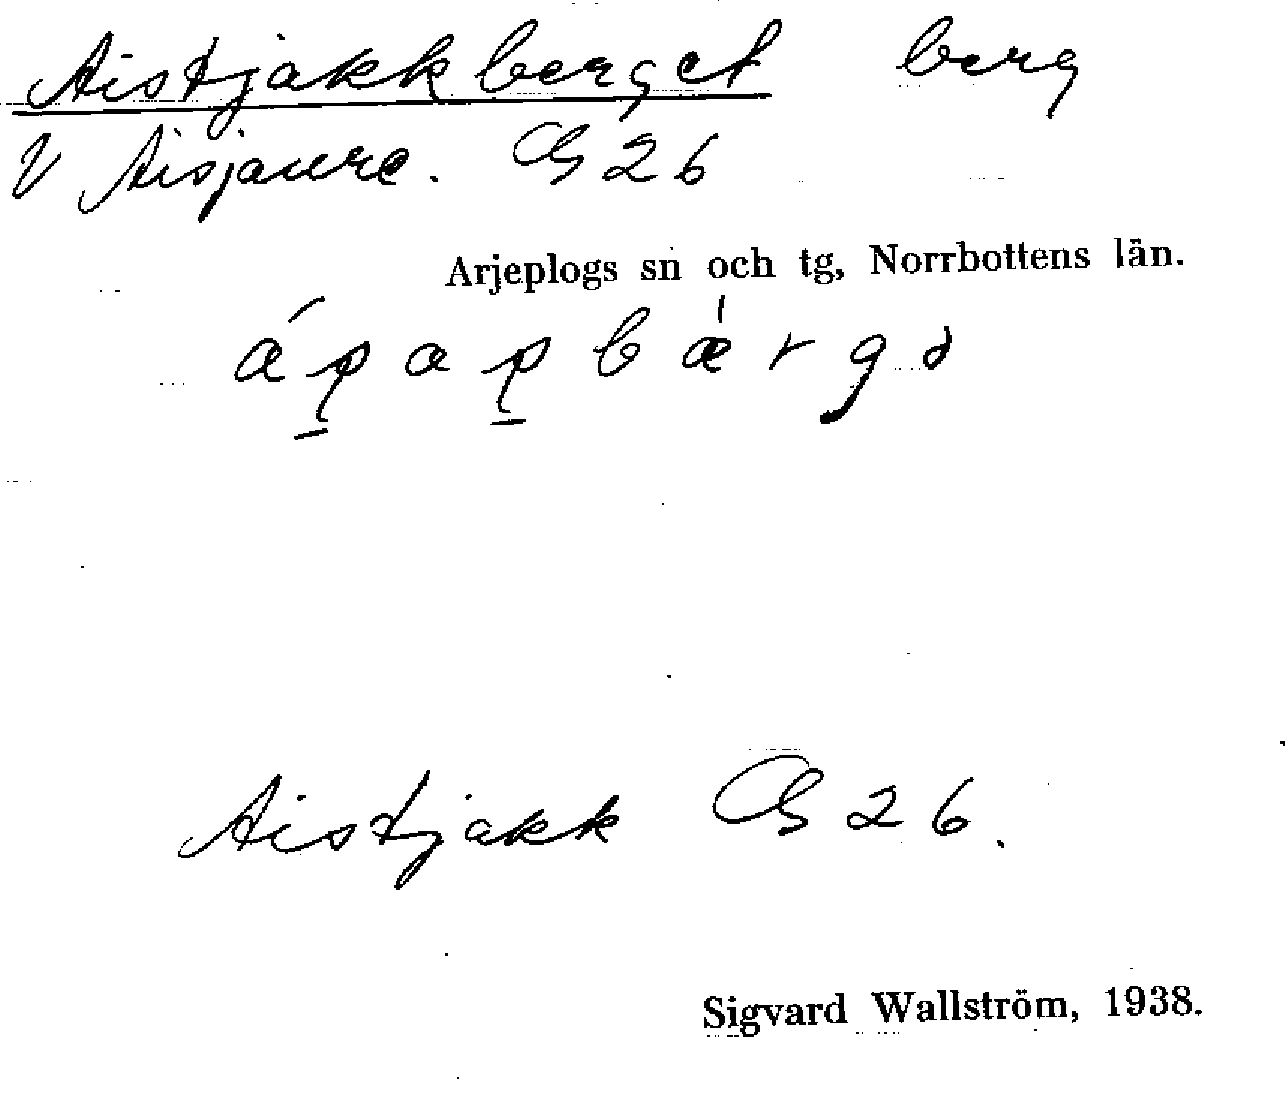 Aistjakkberget berg
V Aisjaure. GS 26
Arjeplogs sn och tg, Norrbottens län.
Aistjakk GS 26.
Sigvard Wallström, 1938.